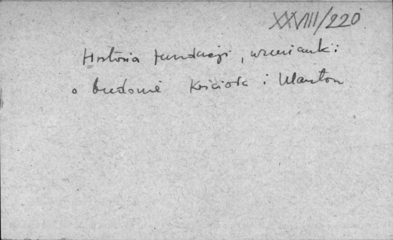 XXVIII/220
Historia fundacji, wzmianki
o budowie Kościoła i klasztor